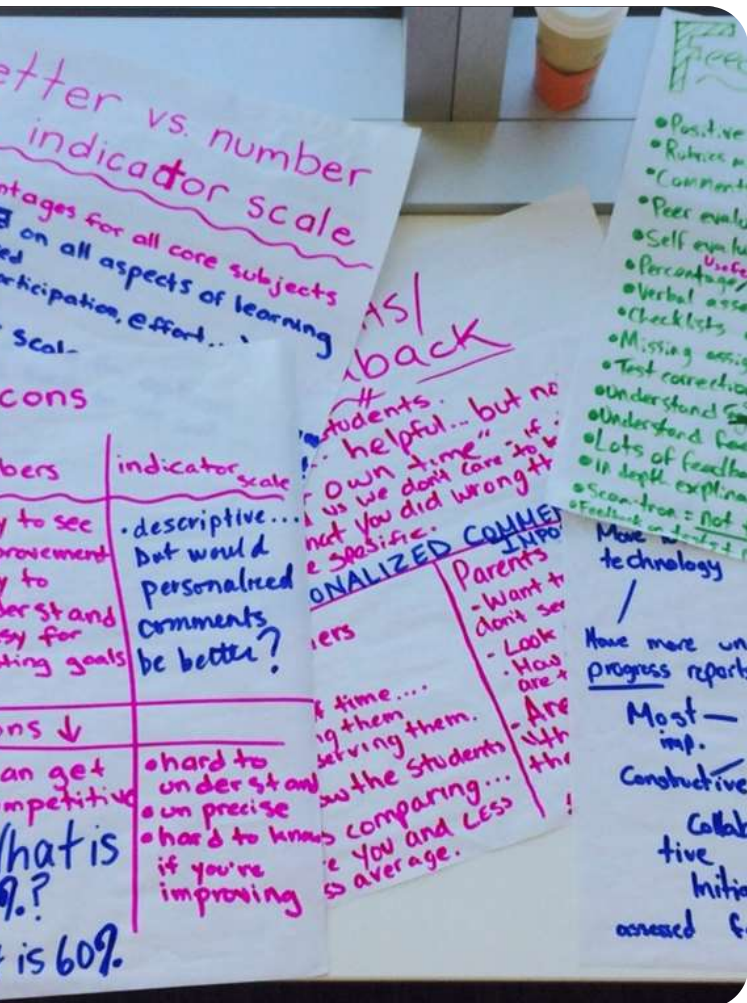 etter vs. number
indicator scale
ntages for all core subjects
on all aspects of learning
ed
articipation, effort...
scal
cons
bers
indicator scale
y to see
provement
y to
derstand
sy for
ting goals
• descriptive...
but would
personalized
comments
be better?
ons ↓
an get
mpetitive
What is
%?
t is 60%
• hard to
understand
• un precise
• hard to know
if you're
improving
ns/
back
students.
helpful... but no
own time"
us we don't care - if
hat you did wrong
e spesific.
ONALIZED COMMEN
IMPO
ers
time....
g them
serving them.
ow the students
s comparing...
e you and LESS
ss average.
Parents
- Want t
don't se
- Look
- How
are t
- Are
the
Feed
• Positive
• Rubrics m
• Comment
• Peer evalu
• Self evalu
usefu
• Percentage
• Verbal asse
• Checklists
• Missing assig
• Test correctio
• Understand
• Understand feed
• Lots of feedba
• In depth explina
• Scan-tron = not
• Feedback on tests +
technology
Have more un
progress reports
Most —
imp.
Constructive
Collab
tive
Initia
assessed f